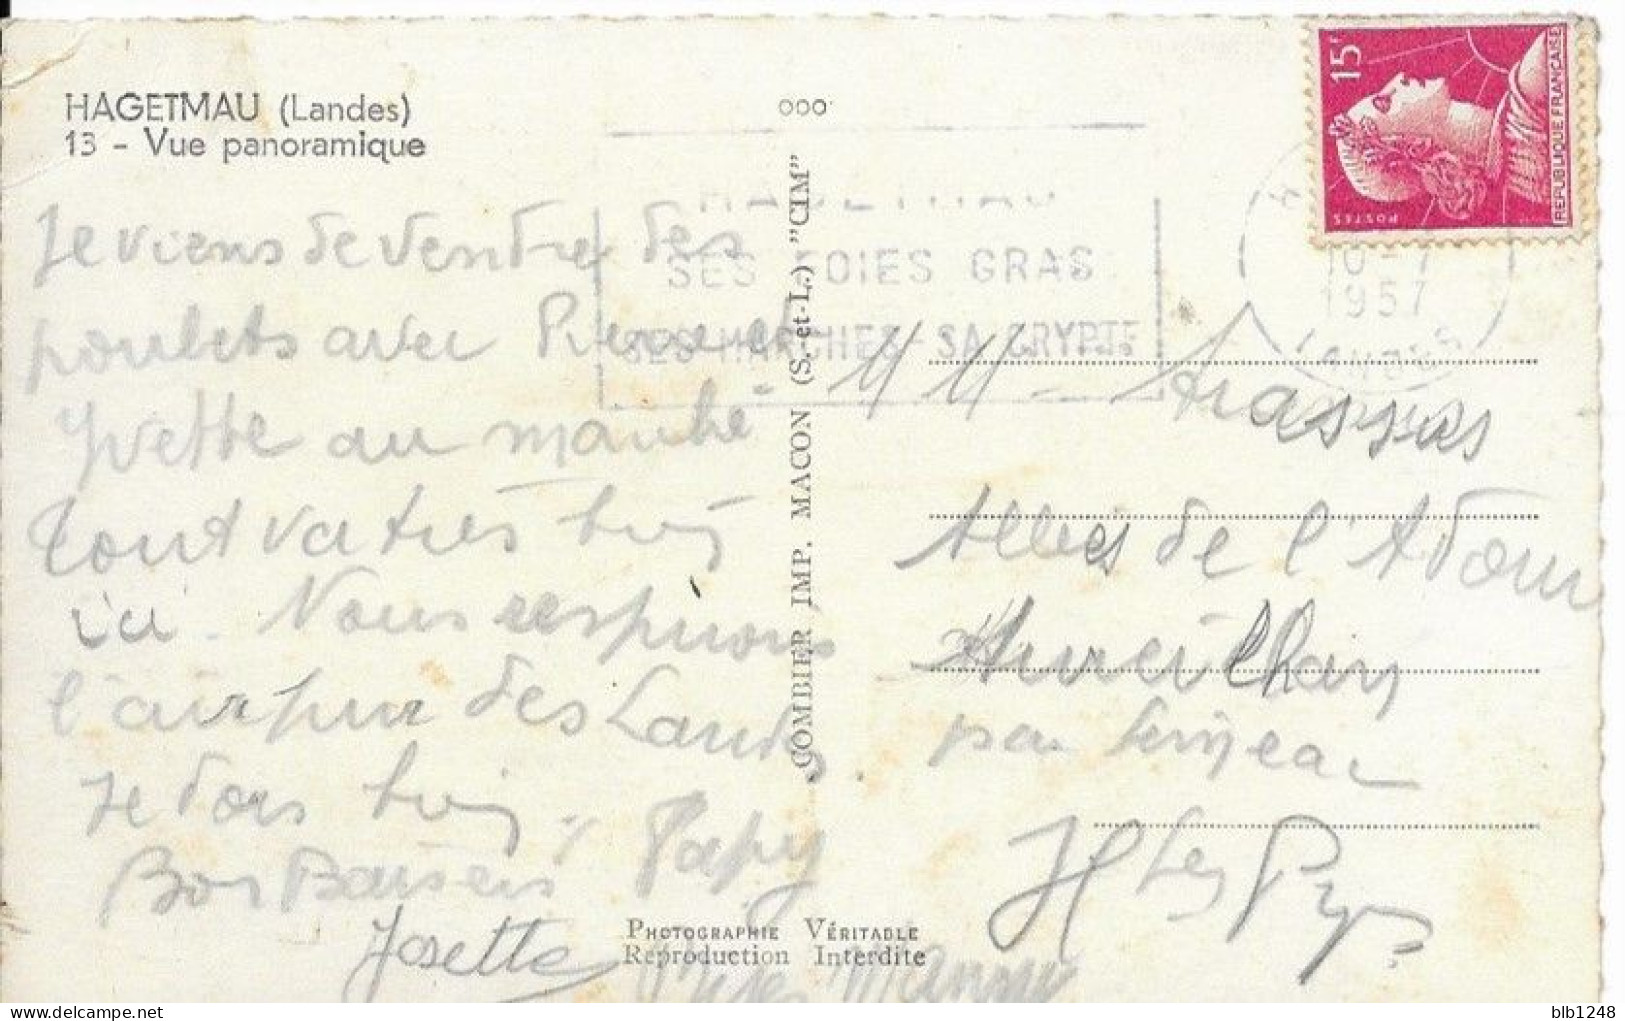 HAGETMAU (Landes)
13 - Vue panoramique
000
15F
POSTES
REPUBLIQUE FRANÇAISE
HAGETMAU
SES FOIES GRAS
SES MARCHES - SA CRYPTE
10-7
1957
LANDES
COMBIER IMP. MACON (S.-et-L.) "CIM"
Je viens de vendre des
poulets avec Pierre et
Yvette au marché
tout va très bien
ici. Nous respirons
l'air pur des Landes.
Je dors bien.
Bons Baisers Papy
Josette
MM
Allées de l'Adour
Aureilhan
par Séméac
Htes Pyr
PHOTOGRAPHIE VÉRITABLE
Reproduction Interdite
blb1248